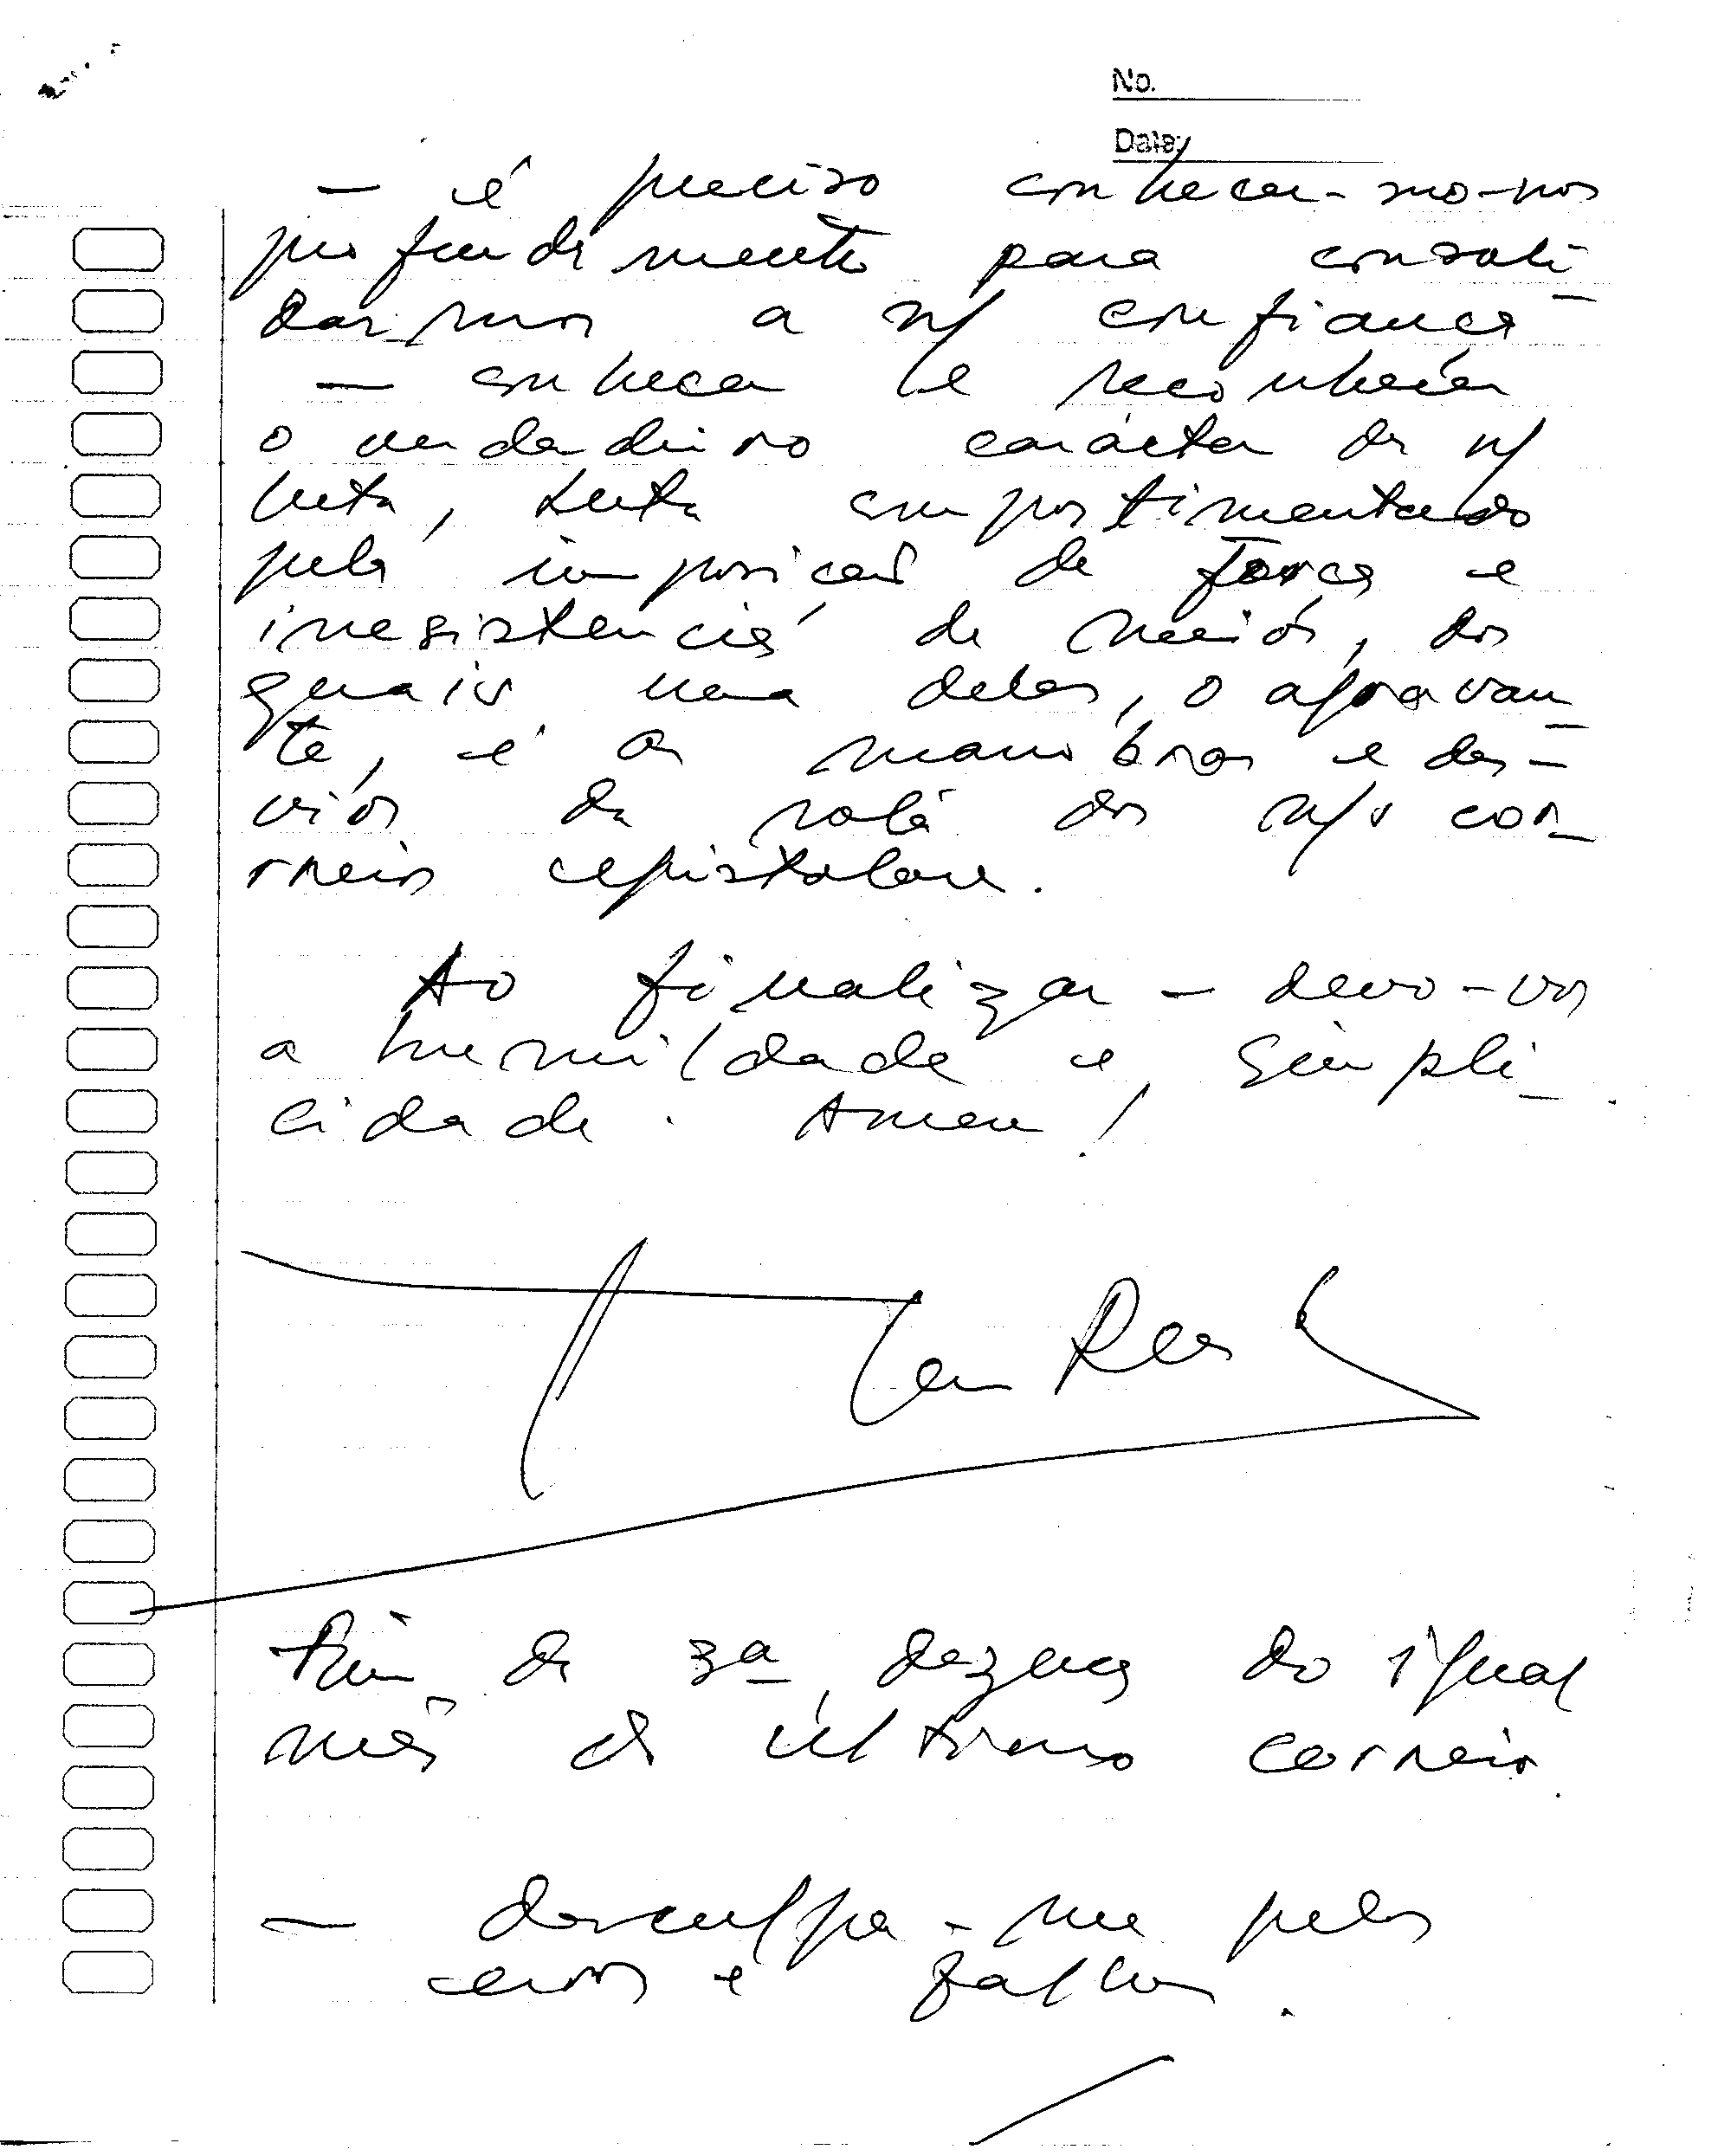 No.
Date:
— é preciso conhecer-mo-nos
profundamente para consoli-
darmos a n/ confiança
— conhecer e reconhecer
o verdadeiro carácter da n/
luta, luta compartimentado
pela imposição da força e
inexistência de meios, dos
quais uma delas, o agravan-
te, é as manobras e des-
vios da rota dos n/s cor-
reios epistolare.
Ao finalizar — devo-vos
a humildade e simpli-
cidade. Amen!
fim da 3a dezena do igual
mês do último correio.
— desculpa-me pelos
erros e falhas.